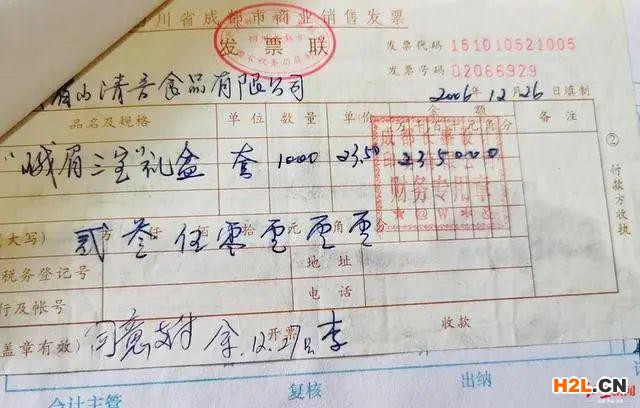 川省成都市商业销售发票
发票联
发票代码 151010521005
发票号码 02066929
眉山清音食品有限公司
2006年12月26日填制
品名及规格 单位 数量 单价 金额 备注
万千百十元角分
"峨眉三宝"礼盒 套 1000 23.50 2350000
财务专用章
大写) 贰万叁仟伍佰零拾零元零角零分
税务登记号 地址
行及帐号 电话
盖章有效) 开票 收款
同意支付 余.12.27日 李
②付款方收执
会计主管 复核 出纳
H2L.CN